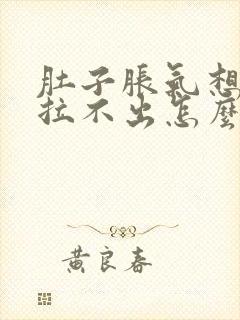 肚子脹氣想
拉不出怎麼
黃良春